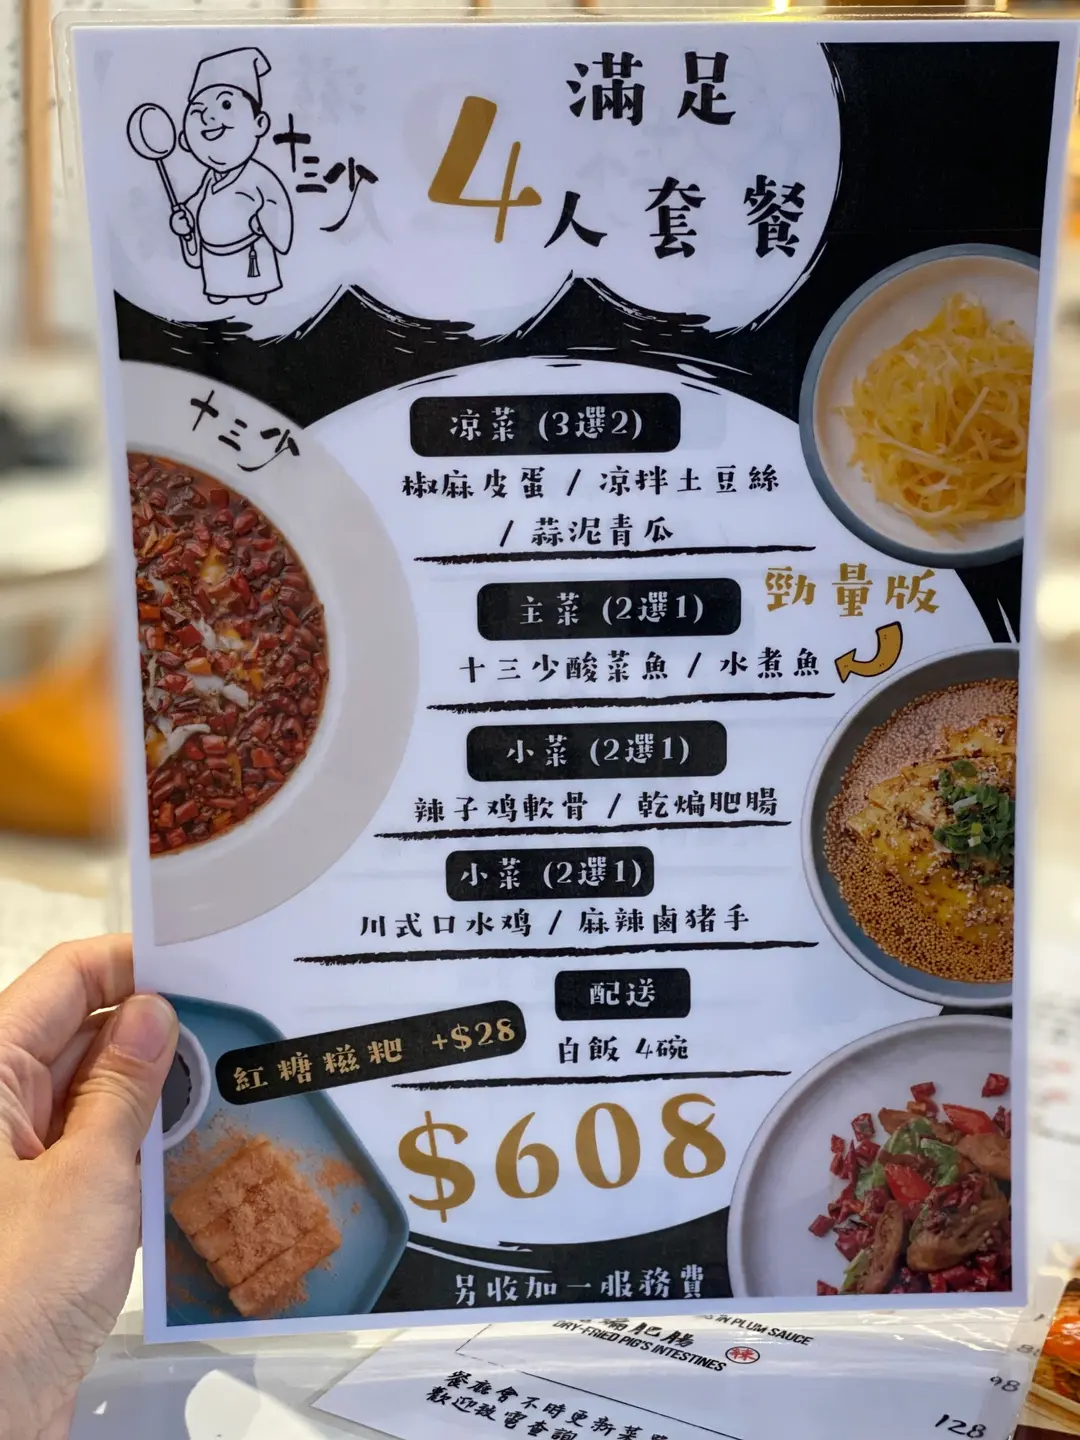 十三少
滿足
4人套餐
十三少
凉菜 (3選2)
椒麻皮蛋 / 凉拌土豆絲
/ 蒜泥青瓜
主菜 (2選1)
勁量版
十三少酸菜魚 / 水煮魚
小菜 (2選1)
辣子鸡軟骨 / 乾煸肥腸
小菜 (2選1)
川式口水鸡 / 麻辣鹵豬手
配送
白飯 4碗
紅糖糍粑 +$28
$608
另收加一服務費
IN PLUM SAUCE
肥腸
DRY-FRIED PIG'S INTESTINES
辣
98
128
餐廳會不時更新菜
歡迎致電查詢